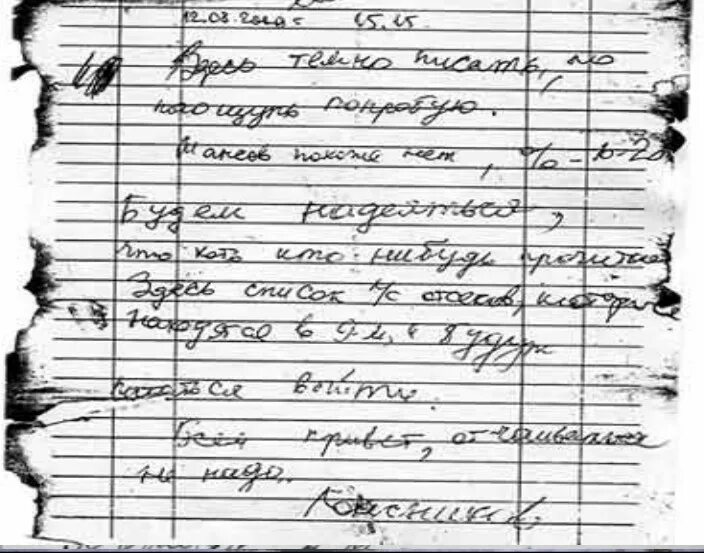 12.08.2000г 15.15
Здесь темно писать, но
наощупь попробую.
Шансов похоже нет, % - 10-20
Будем надеяться,
что хоть кто нибудь прочитает
Здесь список л/с отсеков, которые
находятся в 9-м, и будут
пытаться выйти.
Всем привет, отчаиваться
не надо.
Колесников